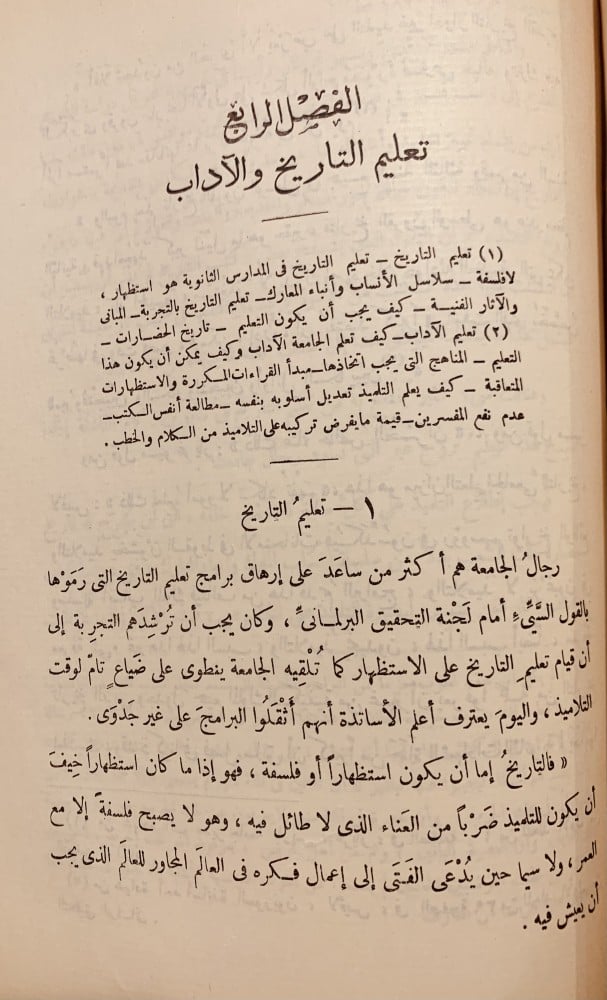 الفصل الرابع
تعليم التاريخ والآداب
(١) تعليم التاريخ – تعليم التاريخ فى المدارس الثانوية هو استظهار ،
لافلسفة – سلاسل الأنساب وأنباء المعارك – تعليم التاريخ بالتجربة – المبانى
والآثار الفنية – كيف يجب أن يكون التعليم – تاريخ الحضارات –
(٢) تعليم الآداب – كيف تعلم الجامعة الآداب وكيف يمكن أن يكون هذا
التعليم – المناهج التى يجب اتخاذها – مبدأ القراءات المكررة والاستظهارات
المتعاقبة – كيف يعلم التلميذ تعديل أسلوبه بنفسه – مطالعة أنفس الكتب –
عدم نفع المفسرين – قيمة مايفرض تركيبه على التلاميذ من الكلام والخطب .
١ – تعليمُ التاريخ
رجالُ الجامعة هم أكثر من ساعَدَ على إرهاق برامج تعليم التاريخ التى رَمَوْها
بالقول السَّيِّءِ أمام لَجْنة التحقيق البرلمانىِّ ، وكان يجب أن تُرْشِدَهم التجرِبة إلى
أن قيام تعليمِ التاريخ على الاستظهار كما تُلْقِيه الجامعة ينطوى على ضَياعٍ تامّ لوقت
التلاميذ ، واليومَ يعترف أعلم الأساتذة أنهم أَثْقَلُوا البرامجَ على غير جَدْوَى .
« فالتاريخُ إما أن يكون استظهاراً أو فلسفة ، فهو إذا ما كان استظهاراً خِيفَ
أن يكون للتلميذ ضَرْباً من العَناء الذى لا طائل فيه ، وهو لا يصبح فلسفةً إلا مع
العمر ، ولا سيما حين يُدْعَى الفَتَى إلى إعمال فكره فى العالَم المجاور للعالَم الذى يجب
أن يعيش فيه .